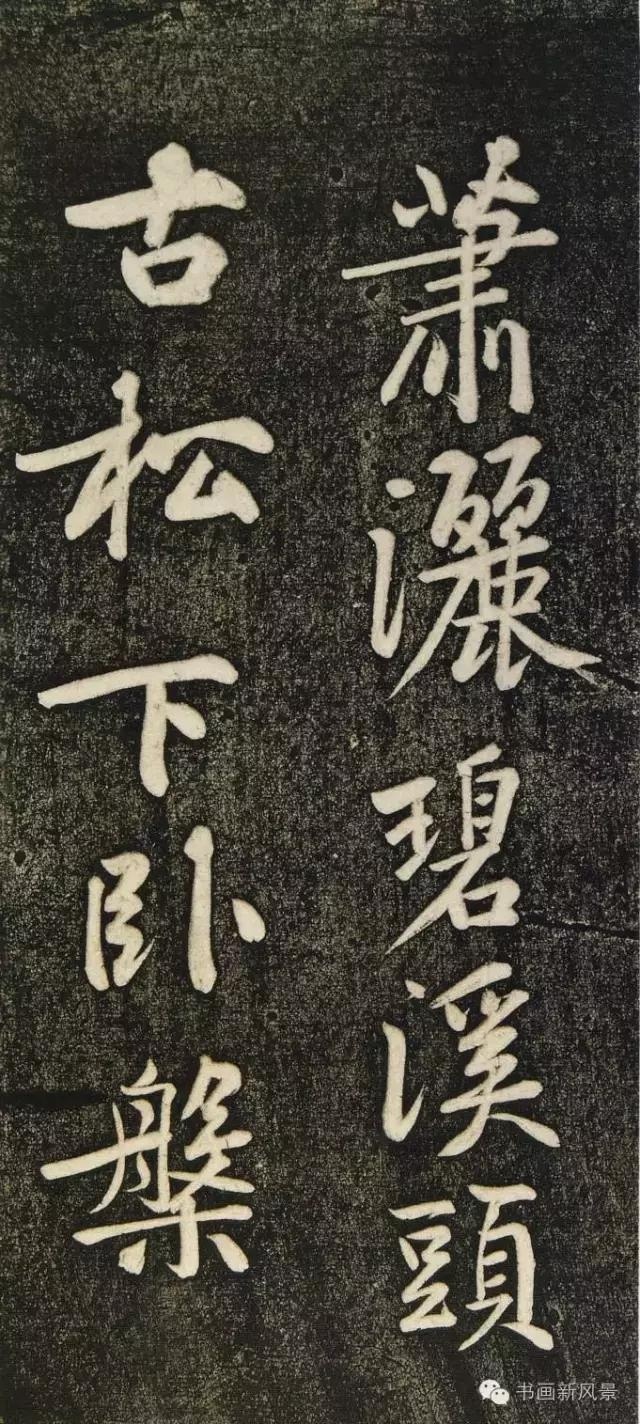 蕭灑碧溪頭
古松下卧槃
书画新风景